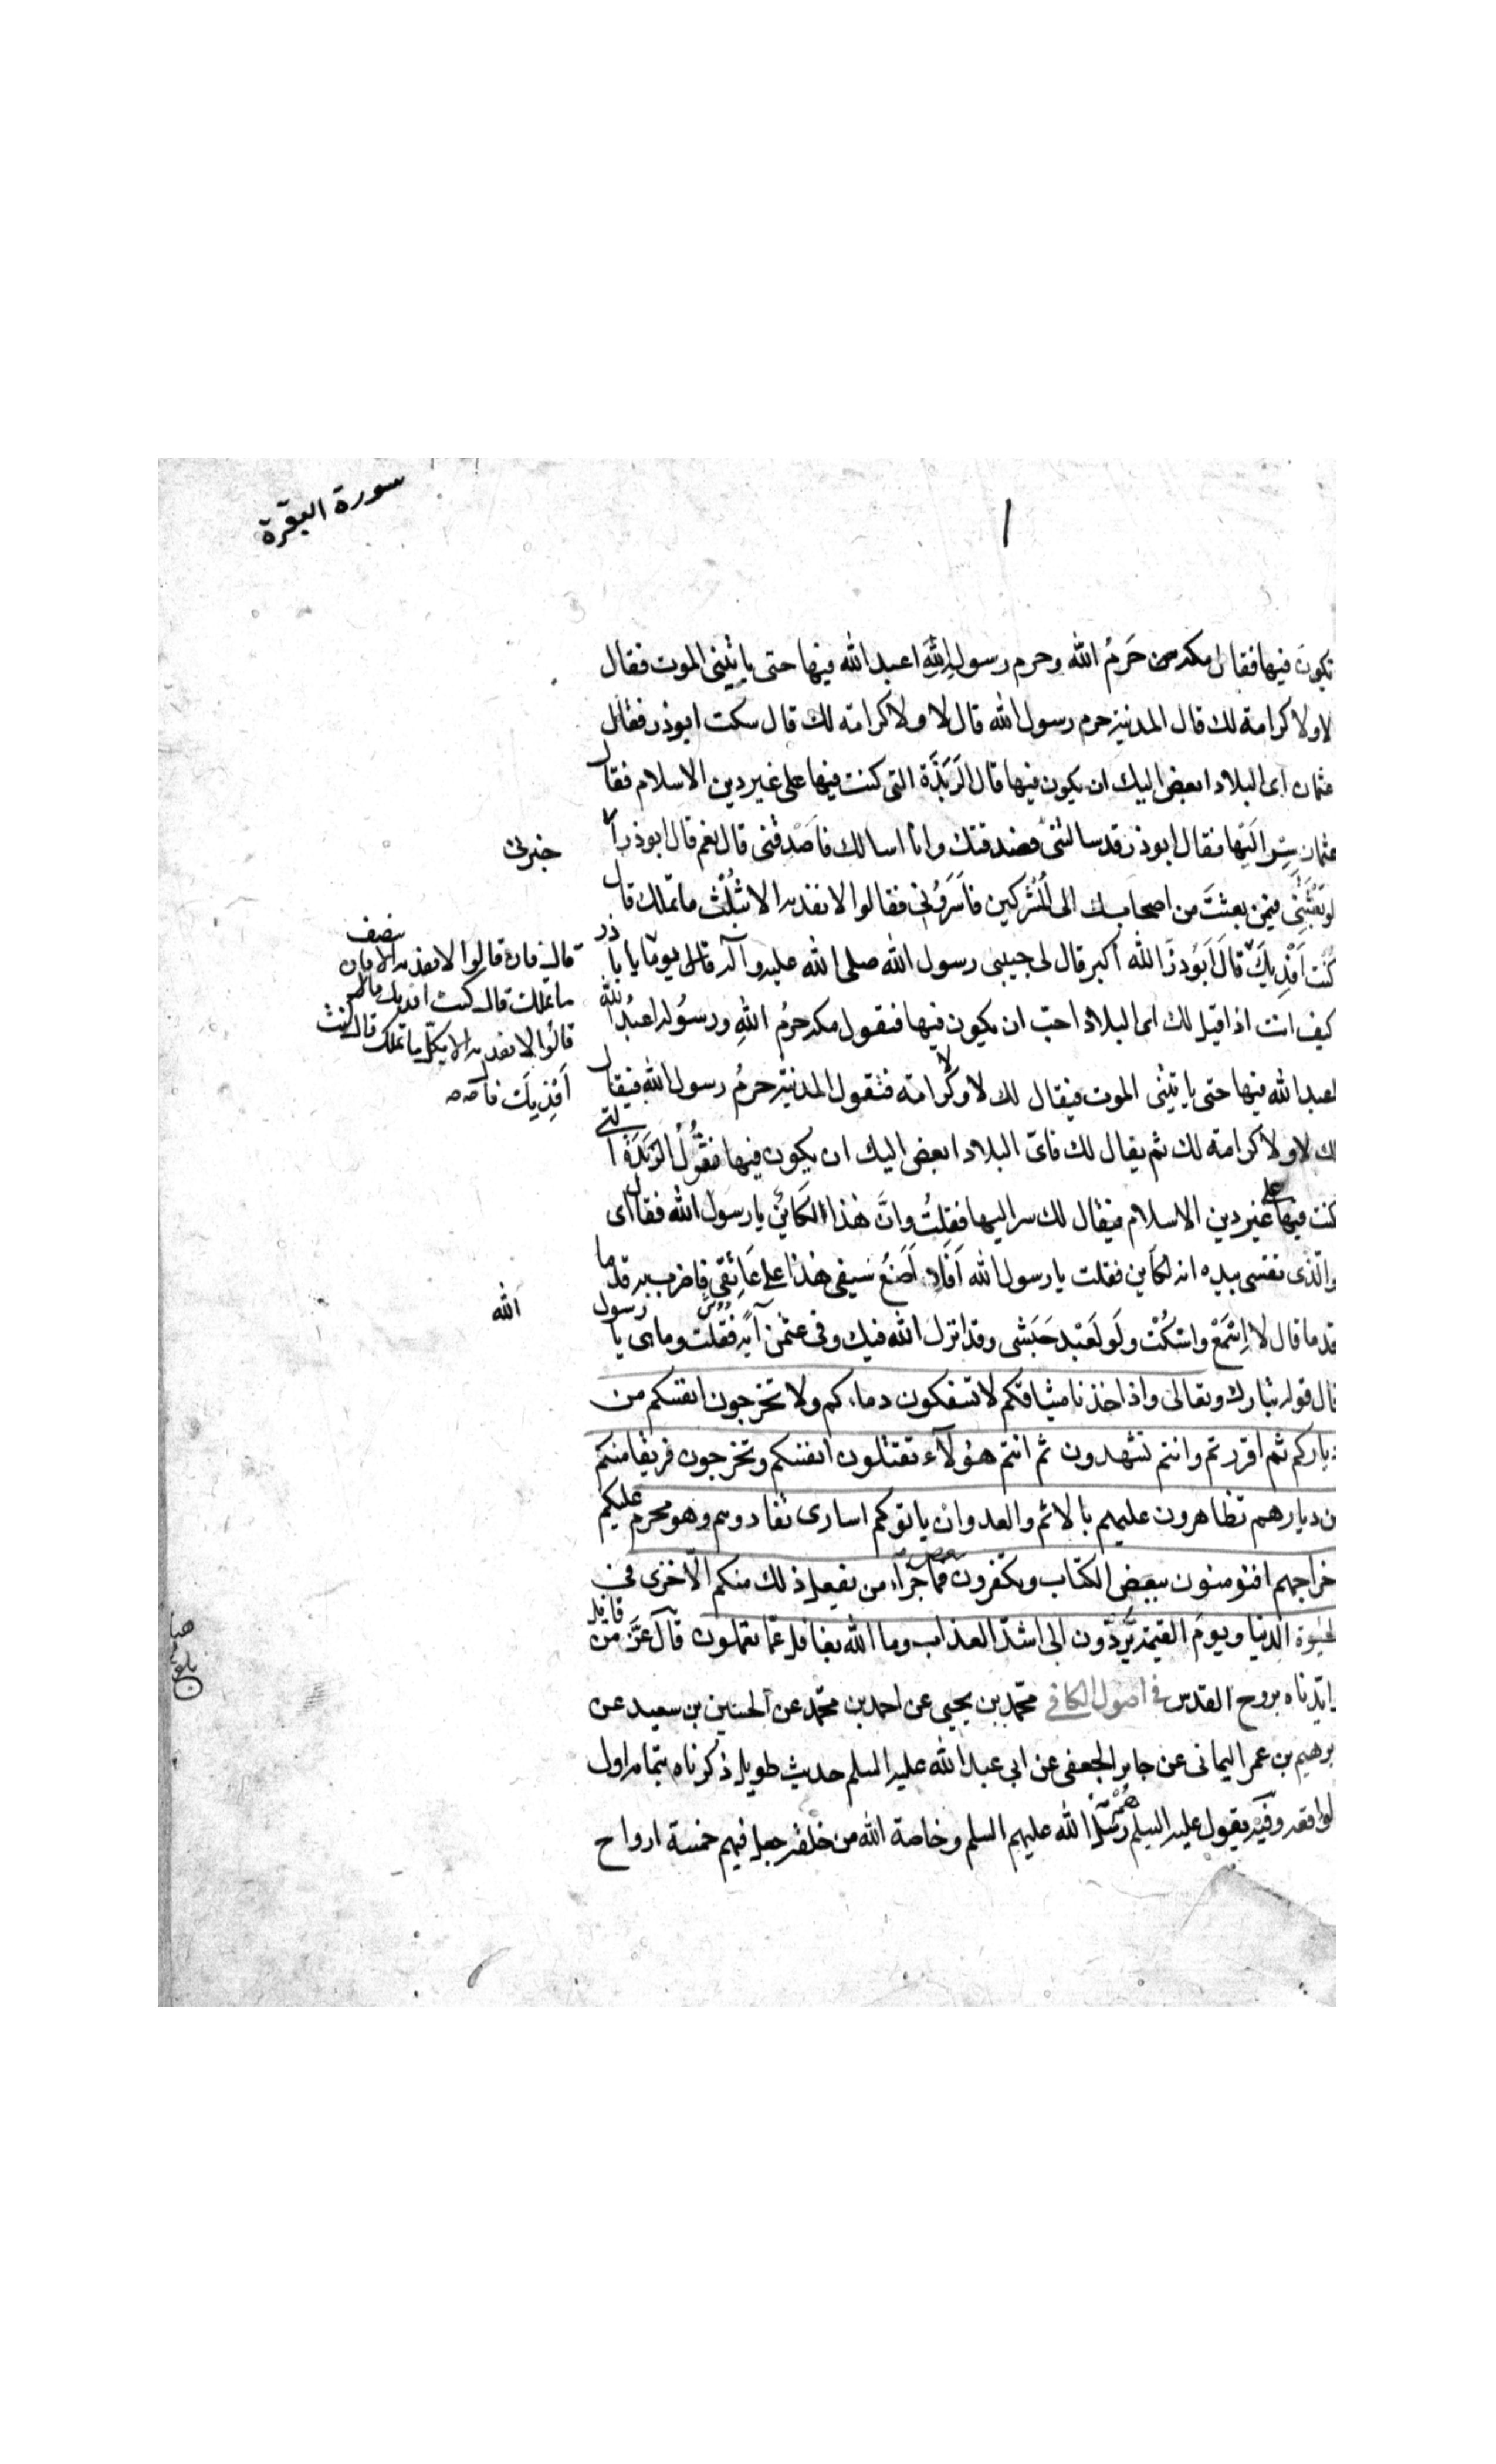 سورة البقرة
تكون فيها فقال مكة من حَرَمُ الله وحرم رسولِ اللهِ اعبد الله فيها حتى ياتينى الموت فقال
لا ولا كرامة لك قال المدنية حرم رسول الله قال لا ولا كرامته لك قال سكت ابوذر فقال
عثمان اى البلاد ابعض اليك ان يكون فيها قال الرَبَذَة التى كنت فيها على غير دين الاسلام فقال
عثمان سِر اليَها فقال ابوذر قد سالتنى فصدقتك وانا اسالك فاَصْدقنى قال نعم قال ابوذر
خبرنى
لو بَعَثْتَنِى فيمن بعثتَ من اصحابك الى المُشركين فاَسَرُونى فقالوا لا نفديه الا بثُلُث ما تملك قال
كُنت اَفْدِيكَ قال اَبُوذر الله اكبر قال لى حبيبى رسول الله صلى الله عليه وآله يومًا يا با ذر
قال فان قالوا لا نفديه الا بنصف
ما تملك قال كنت افديك قال فان
قالوا لا نفديه الا بكل ما تملك قال كنت
اَفْدِيكَ
كيف انت اذا قيل لك اى البلاد احبّ ان يكون فيها فتقول مكة حرمُ اللهِ ورسوُله اعبُد الله
اعبد الله فيها حتى ياتينى الموت فيقال لك لا ولا كرامة فتقول المدنية حرمُ رسول الله فيقال
لك لا ولا كرامة لك ثم يقال لك فاىّ البلاد ابعض اليك ان يكون فيها فتقُولُ الرَبَذَة التى
كنت فيها على غير دين الاسلام فيقال لك سر اليها فقلتُ وانَّ هذا لكَائنٌ يا رسول الله فقال اى
والّذى نفسى بيده انه لكاين فقلت يا رسول الله اَفَلا اَضَعُ سَيفى هذا على عَاتِقى فاضرب به قدما
قدما قال لا اِسْمَعْ واسْكُتْ ولَو لعَبْد حَبَشى وقد انزل الله فيك وفى عثمن آية فقلت وماهى يا رسول
الله
قال قوله تبارك وتعالى واذ اخذنا ميثاقكم لا تسفكون دماءكم ولا تخرجون انفسكم من
دياركم ثم اقررتم وانتم تشهدون ثم انتم هؤلآء تقتلون انفسكم وتخرجون فريقا منكم
من ديارهم تظاهرون عليهم بالاثم والعدوان وان ياتوكم اسارى تفادوهم وهو محرم عليكم
اخراجهم افتؤمنون ببعض الكتاب وتكفرون ببعض فما جزآء من يفعل ذلك منكم الّا خزى فى
الحيوة الدنيا ويومَ القيمة يُردّون الى اشدّ العذاب وما الله بغافل عمّا تعملون قال عزّ من قائل
وايّدناه بروح القدس فى اصول الكافى محمّد بن يحيى عن احمد بن محمّد عن الحسين بن سعيد عن
ابرهيم بن عمر اليمانى عن جابر الجعفى عن ابى عبد الله عليه السلم حديث طويل ذكرناه بتمامه اول
الواقعة وفيه يقول عليه السلم رسل الله عليهم السلم وخاصة الله من خلقه جعل فيهم خمسة ارواح